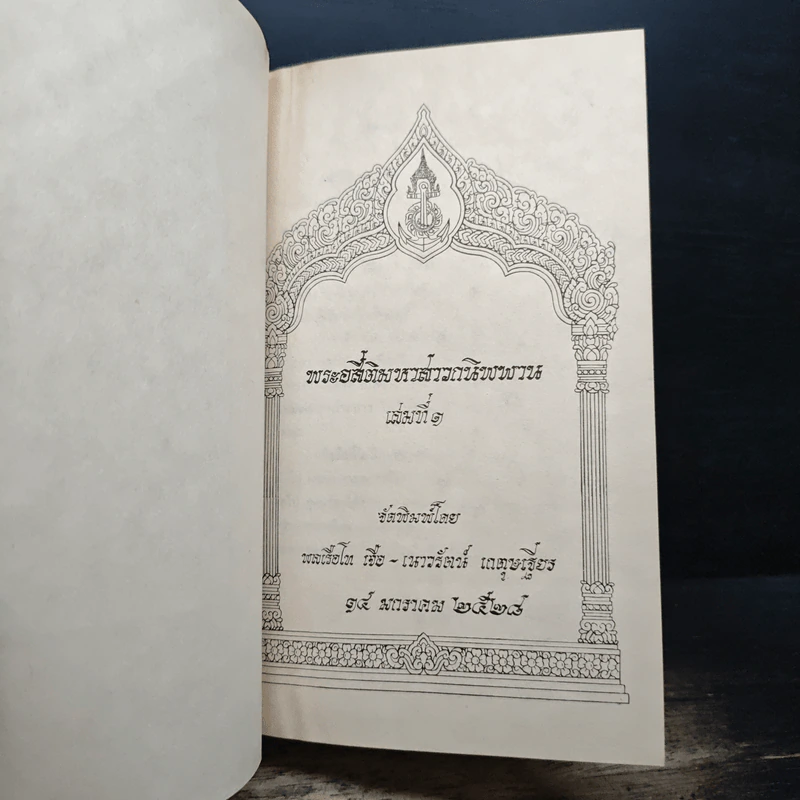 พระอสีติมหาสาวกนิพพาน
เล่มที่ ๑
จัดพิมพ์โดย
พลเรือโท เจือ - เนาวรัตน์ เกตุษเฐียร
๑๔ มกราคม ๒๕๒๘